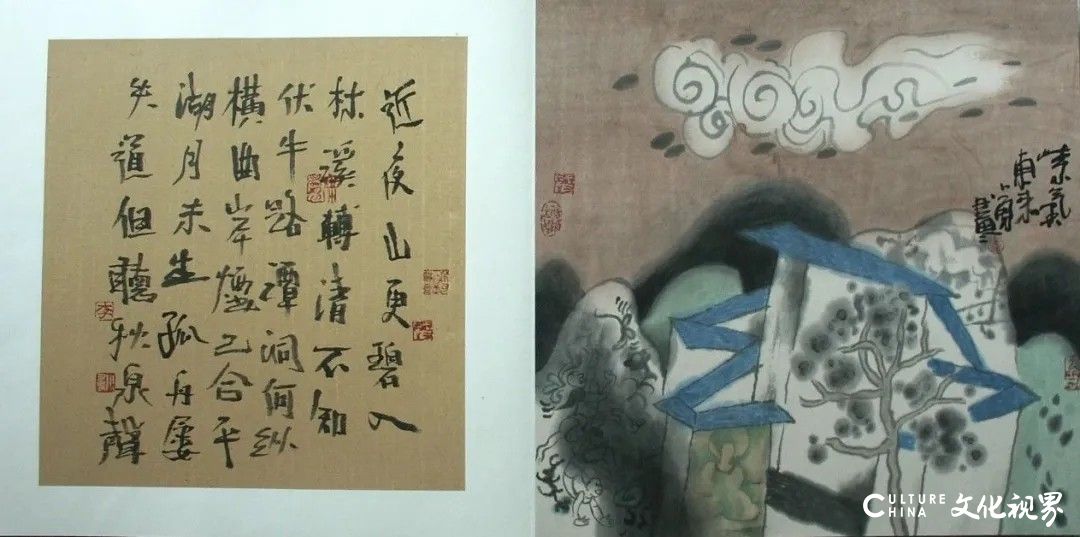 近夜山更碧入
林溪轉清不知
伏牛路潭洞何纵
横曲岸煙已合平
湖月未生孤舟屡
失道但聽秋泉聲
紫氣
東来
CULTURE
CHINA
文化视界